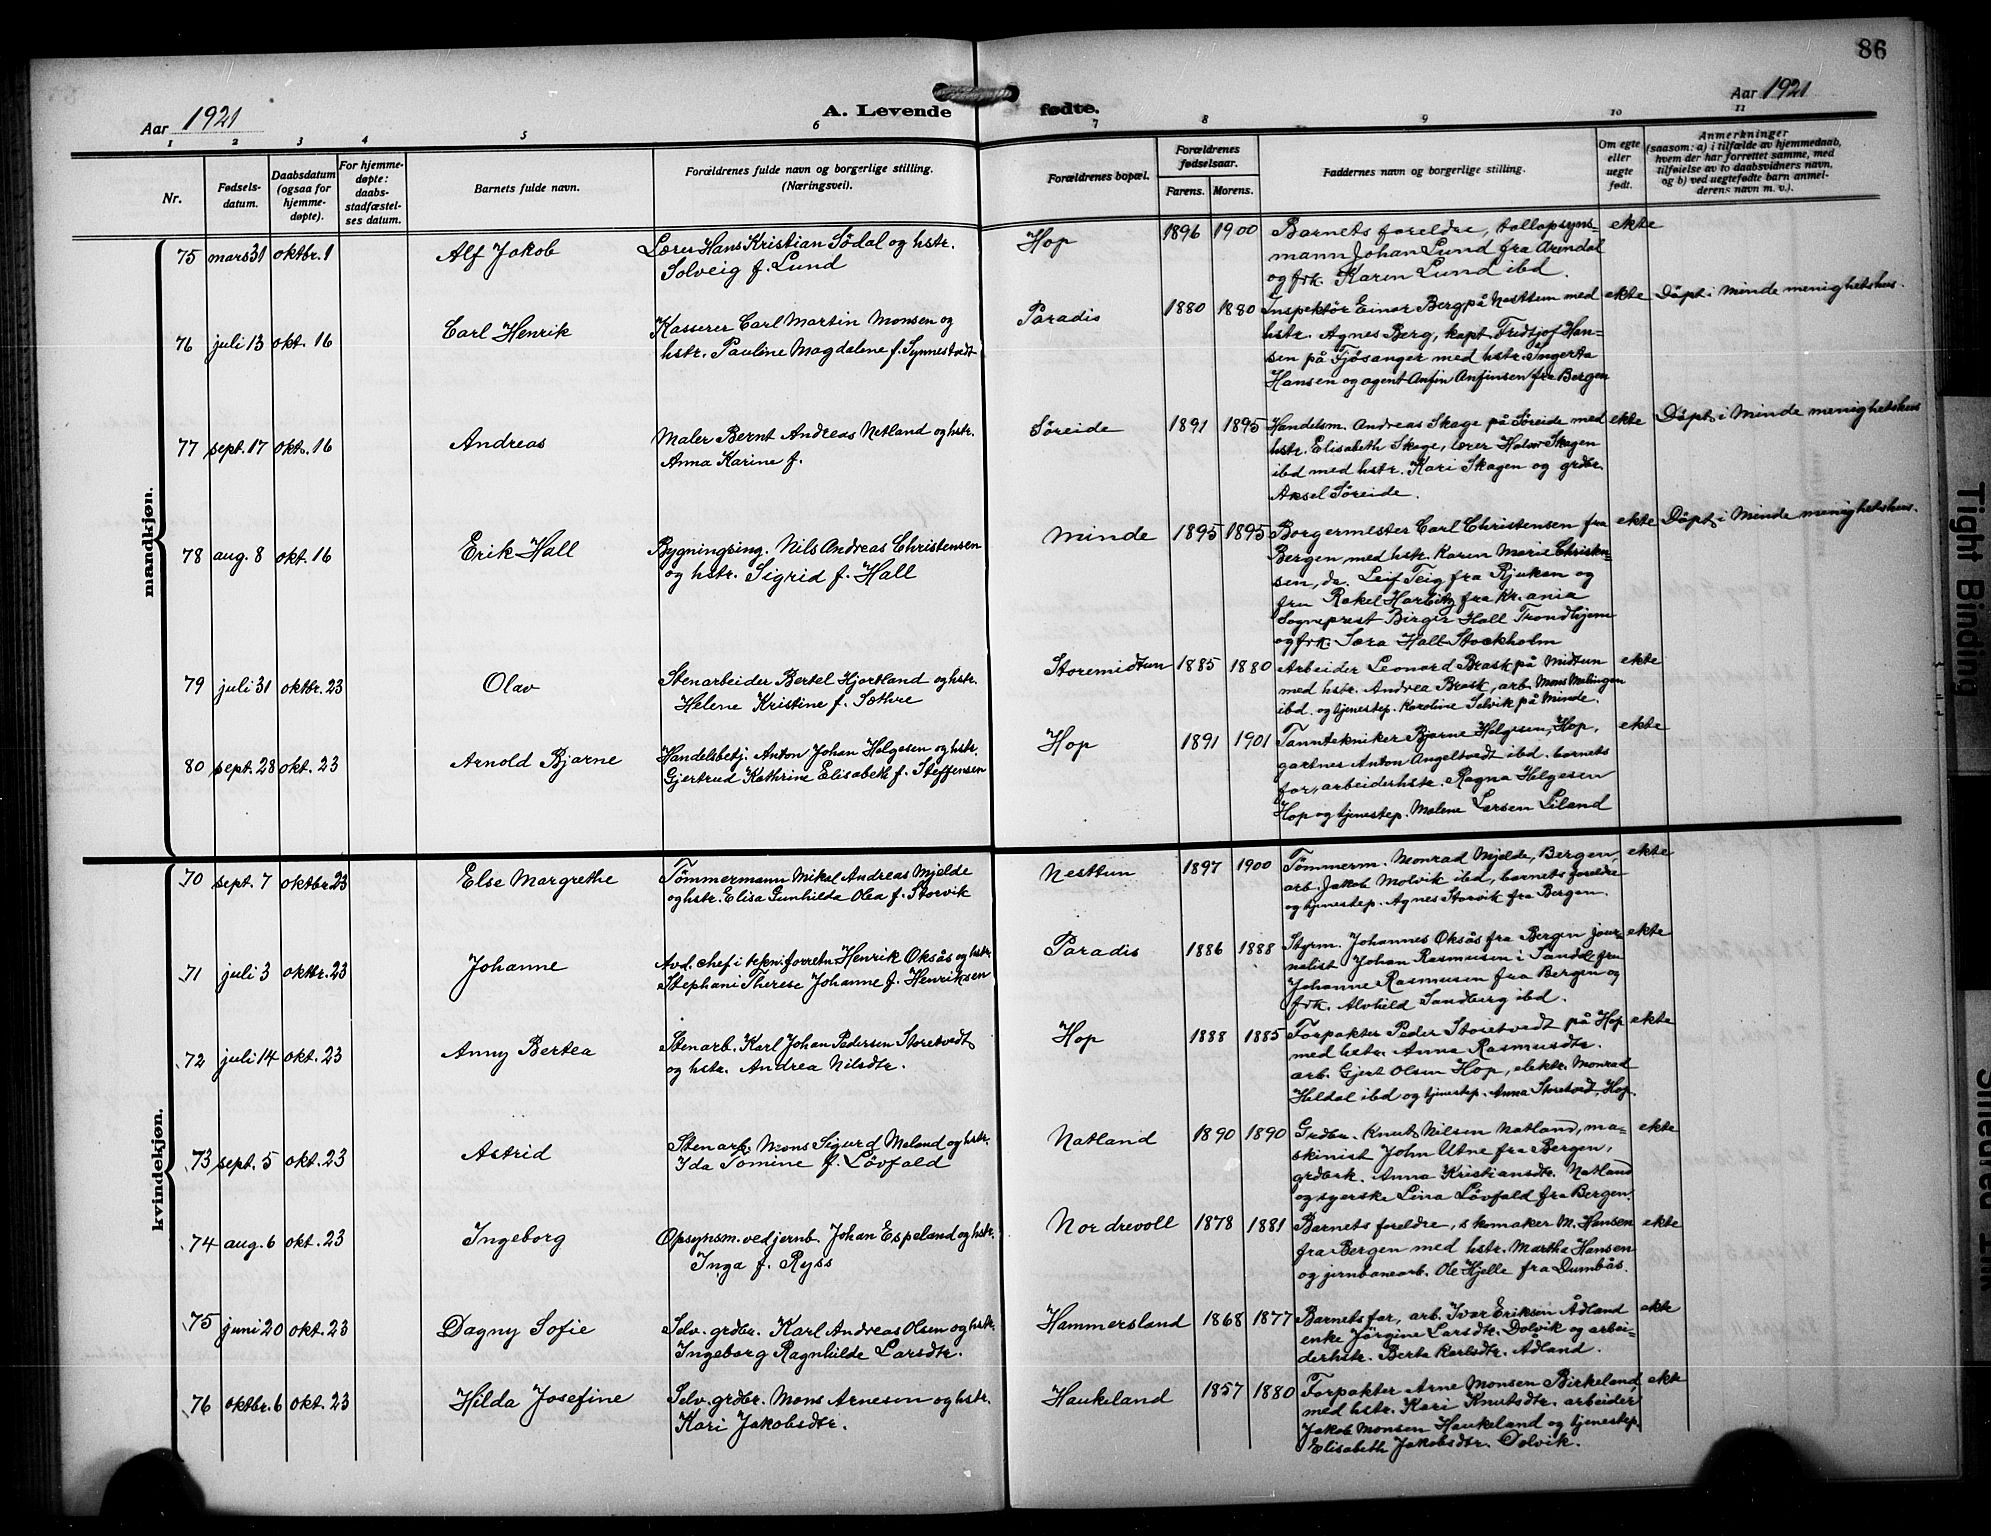 86
Aar 1921
A. Levende fødte.
Aar 1921
1 2 3 4 5 6 7 8 9 10 11
Nr.
Fødsels-
datum.
Daabsdatum
(ogsaa for
hjemme-
døpte).
For hjemme-
døpte:
daabs-
stadfæstel-
ses datum.
Barnets fulde navn.
Forældrenes fulde navn og borgerlige stilling.
(Næringsvei).
Forældrenes bopæl.
Forældrenes
fødselsaar.
Farens. Morens.
Faddernes navn og borgerlige stilling.
Om egte
eller
uegte
født.
Anmerkninger
(saasom: a) i tilfælde av hjemmedaab,
hvem der har forrettet samme, med
tilføielse av to daabsvidners navn,
og b) ved uegtefødte barn anmel-
derens navn m. v.).
mandkjøn.
75 mars 31 oktbr. 1 Alf Jakob
Lærer Hans Kristian Södal og hstr.
Solveig f. Lund
Hop 1896 1900
Barnets foreldre, tollopsyns-
mann Johan Lund fra Arendal
og frk. Karen Lund ibd.
ekte
76 juli 13 okt. 16 Carl Henrik
Kasserer Carl Martin Monsen og
hstr. Pauline Magdalene f. Synnestvedt
Paradis 1880 1880
Inspektör Einar Berg på Nesttun med
hstr. Agnes Berg, kapt. Fridtjof Han-
sen på Fjösanger med hstr. Ingerta
Hansen og agent Anfin Anfinsen fra Bergen
ekte Döpt i Minde menighetshus.
77 sept. 17 okt. 16 Andreas
Maler Bernt Andreas Netland og hstr.
Anna Karine f.
Söreide 1891 1895
Handelsm. Andreas Skage på Söreide med
hstr. Elisabeth Skage, lærer Halvor Skagen
ibd med hstr. Kari Skagen og grdbr.
Aksel Söreide.
ekte Döpt i Minde menighetshus
78 aug. 8 okt. 16 Erik Hall
Bygningsing. Nils Andreas Christensen
og hstr. Sigrid f. Hall
Minde 1895 1895
Borgermester Carl Christensen fra
Bergen med hstr. Karen Marie Christen-
sen, dr. Leif Teig fra Rjukan og
fru Rakel Harbitz fra Kr.ania
Sogneprest Birger Hall Trondhjem
og frk. Sara Hall Stockholm
ekte Döpt i Minde menighetshus.
79 juli 31 oktbr. 23 Olav
Stenarbeider Bertel Hjortland og hstr.
Helene Kristine f. Sæthre
Storemidtun 1885 1880
Arbeider Leonard Brask på Midtun
med hstr. Andrea Brask, arb. Mons Malingen
ibd. og tjenestep. Karoline Selvik på Minde.
ekte
80 sept. 28 okt. 23 Arnold Bjarne
Handelsbetj. Anton Johan Helgesen og hstr.
Gjertrud Kathrine Elisabeth f. Steffensen
Hop 1891 1901
Tanntekniker Bjarne Helgesen, Hop,
gartner Anton Angeltvedt ibd. barnets
far, arbeiderhstr. Ragna Helgesen
Hop og tjenestep. Malene Larsen Liland
ekte
kvindekjøn.
70 sept. 7 oktbr. 23 Else Margrethe
Tömmermann Mikal Andreas Mjelde
og hstr. Elisa Gunhilda Olea f. Storvik
Nesttun 1897 1900
Tömmerm. Monrad Mjelde, Bergen,
arb. Jakob Molvik ibd, barnets foreldre
og tjenestep. Agnes Storvik fra Bergen.
ekte
71 juli 3 oktbr. 23 Johanne
Avd. chef i tekn. forretn. Henrik Oksås og hstr.
Stephani Therese Johanne f. Henriksen
Paradis 1886 1888
Styrm. Johannes Oksås fra Bergen jour-
nalist Johan Rasmusen i fru
Johanne Rasmusen fra Bergen og
frk. Alvhild Sandberg ibd.
ekte
72 juli 14 okt. 23 Anny Bertea
Stenarb. Karl Johan Pedersen Storetvedt
og hstr. Andrea Nilsdtr.
Hop 1888 1885
Forpakter Peder Storetvedt på Hop
med hstr. Anna Rasmusdtr.
arb. Gjert Olsen Hop, elektr. Monrad
Haldal ibd og tjenestep. Anna Storetvedt, Hop.
ekte
73 sept. 5 okt. 23 Astrid
Stenarb. Mons Sigurd Meland og hstr.
Ida Tomine f. Lövfald
Natland 1890 1890
Grdbr. Knut Nilsen Natland, ma-
skinist John Utne fra Bergen,
grdbrk. Anna Kristiansdtr. Natland
og syerske Lina Lövfald fra Bergen.
ekte
74 aug. 6 okt. 23 Ingeborg
Opsynsm. ved jernb. Johan Espeland og hstr.
Inga f. Ryss
Nordrevoll 1878 1881
Barnets foreldre, skomaker M. Hansen
fra Bergen med hstr. Martha Hansen
og jernbanearb. Ole Hjelle fra Dumbås.
ekte
75 juni 20 okt. 23 Dagny Sofie
Selv. grdbr. Karl Andreas Olsen og hstr.
Ingeborg Ragnhilde Larsdtr.
Hammersland 1868 1877
Barnets far, arb. Ivar Eriksen Ådland
enke Jörgine Larsdtr. Dolvik og arbei-
derhstr. Berta Karlsdtr. Ådland.
ekte
76 oktbr. 6 okt. 23 Hilda Josefine
Selv. grdbr. Mons Arnesen og hstr.
Kari Jakobsdtr.
Haukeland 1857 1880
Forpakter Arne Monsen Birkeland,
med hstr. Kari Knutsdtr. arbeider
Jakob Monsen Haukeland og tjenestep.
Elisabeth Jakobsdtr. Dolvik.
ekte
Tight Binding
Smeared Ink